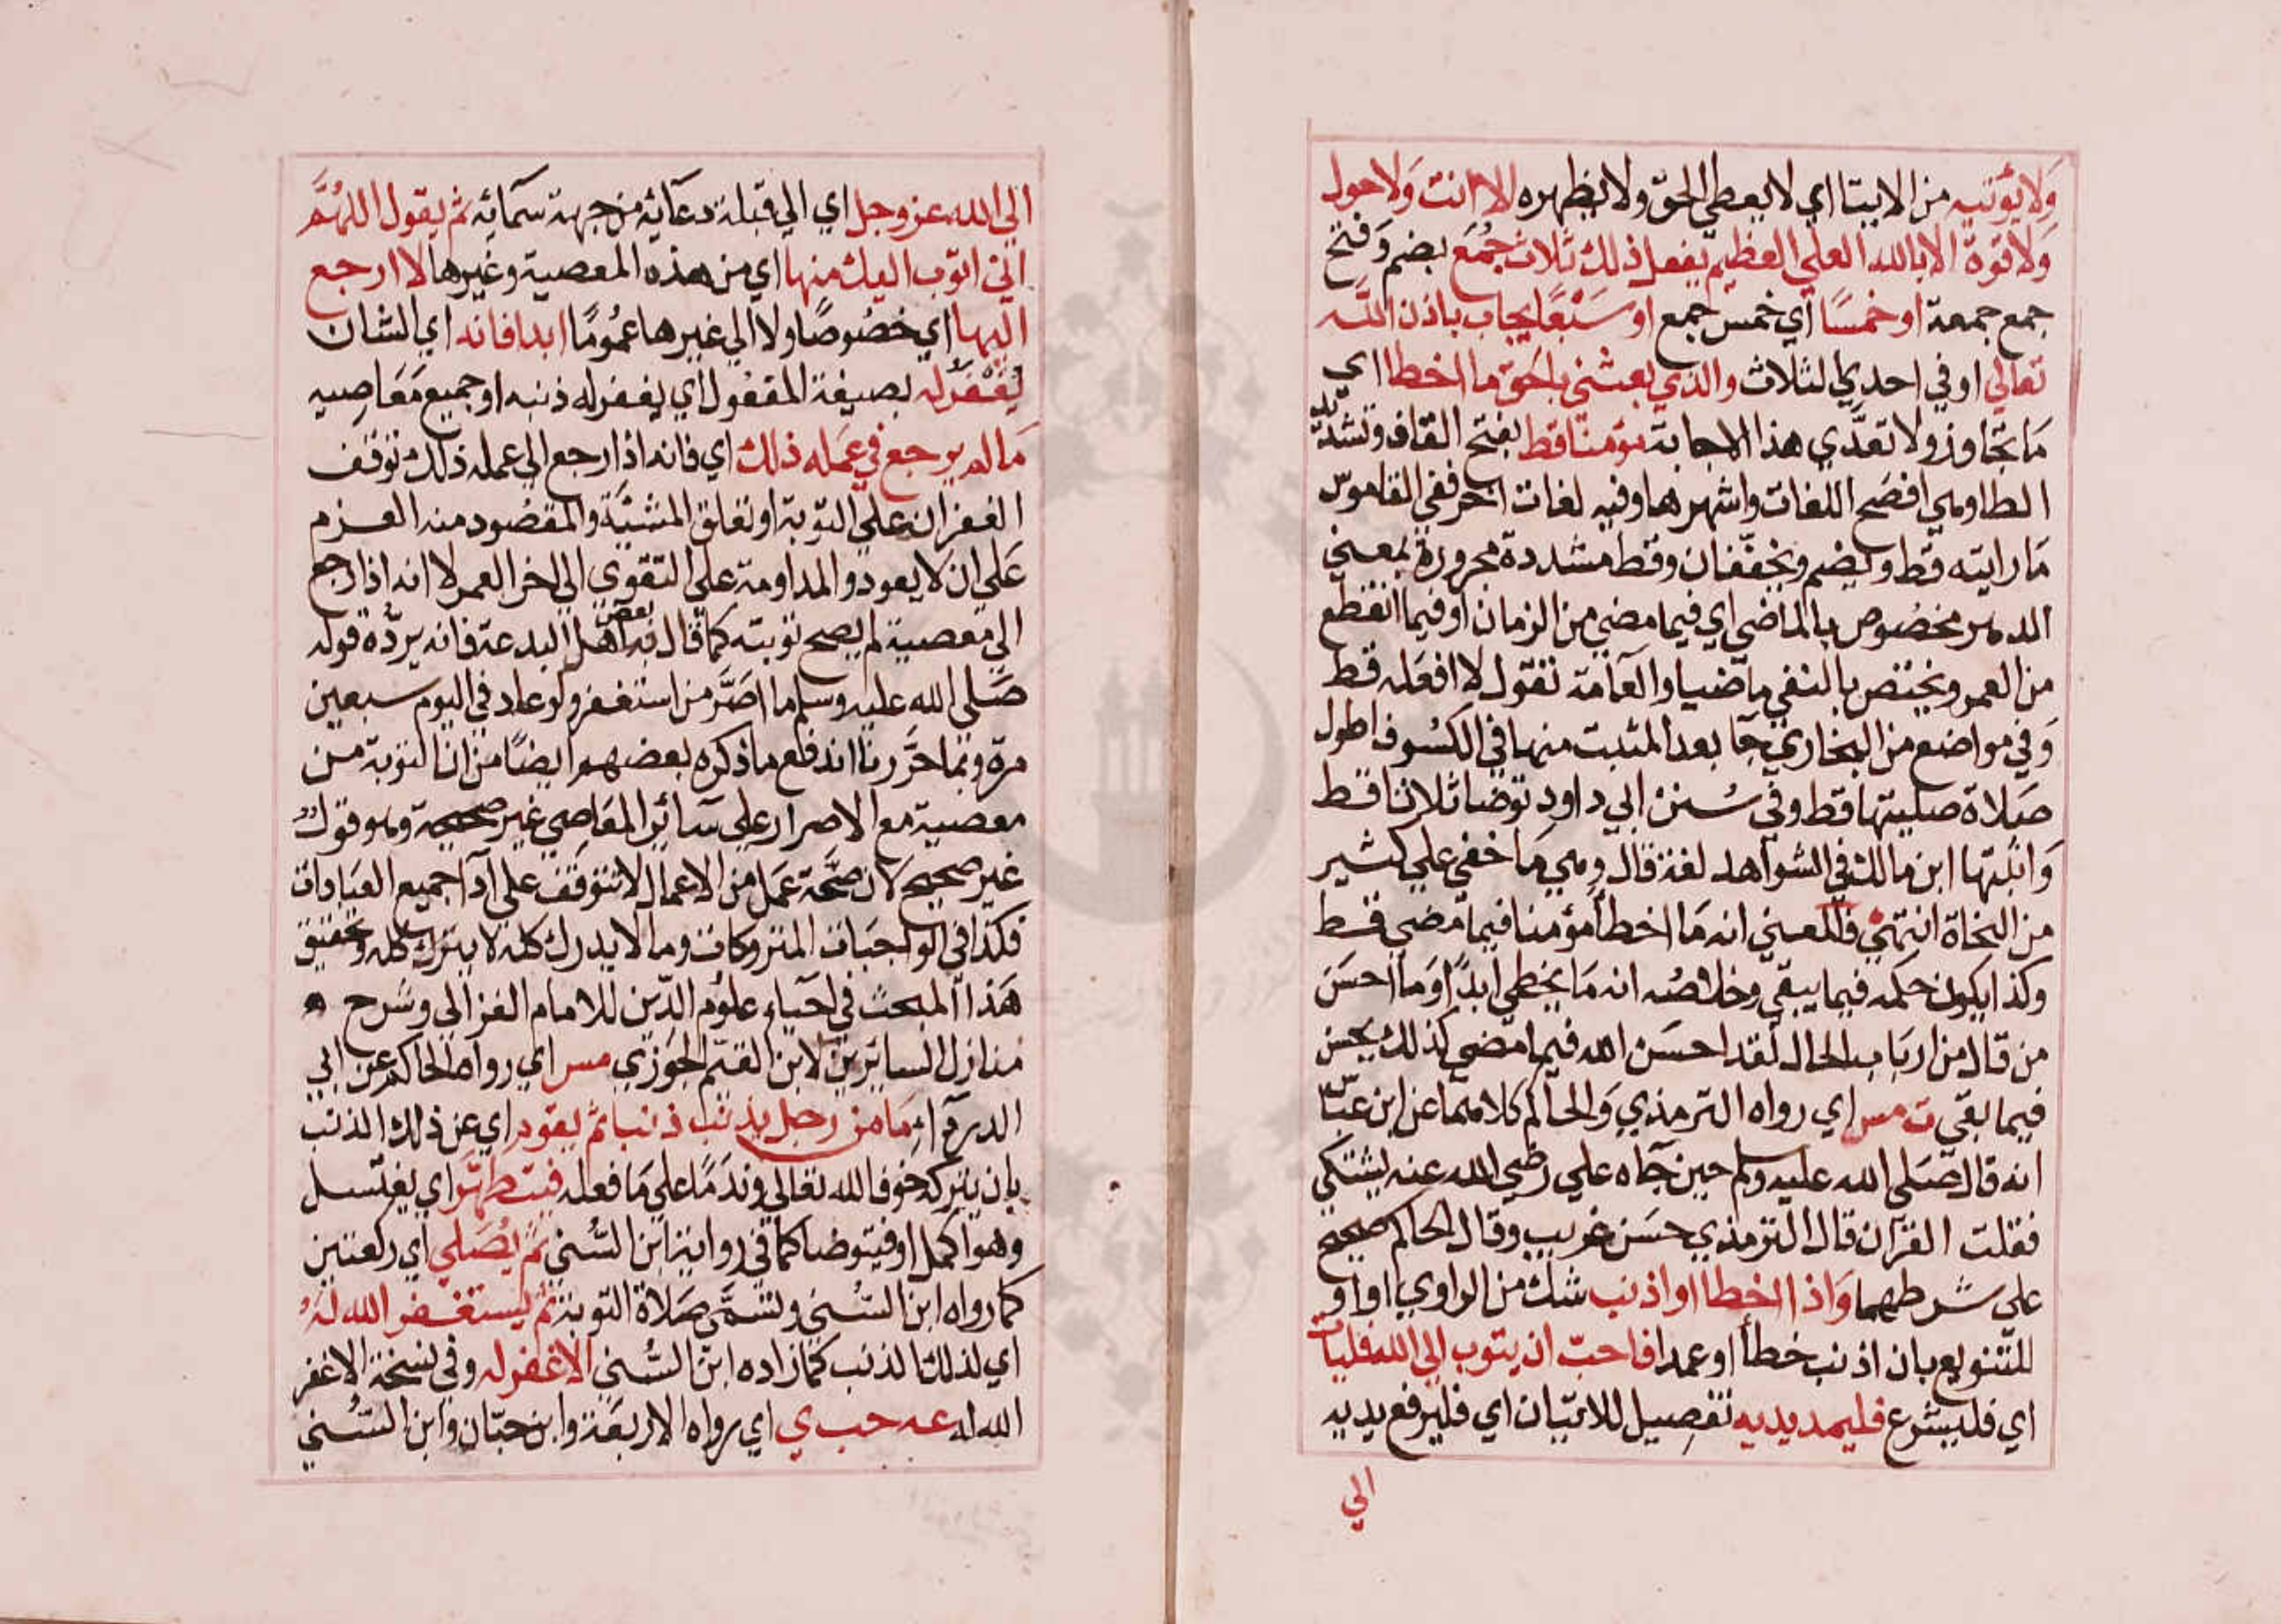 ولا يؤتيه من الايتا اي لا يعطي الحق ولا يظهره الا انت ولا حول
ولا قوة الا بالله العلي العظيم يفعل ذلك ثلاث جُمَع بضم وفتح
جمع جمعة او خمسًا اي خمس جمع او سَبْعًا يجاب باذن الله
تعالي او في احدي الثلاث والذي بعثني بالحق ما اخطا اي
ما تجاوز ولا تعدّي هذا الاجابة مؤمنا قط بفتح القاف وتشديد
الطا وهي افصح اللغات واشهرها وفيه لغات اخر ففي القاموس
ما رايته قط ويضم ويخففان وقط مشددة مجرورة بمعني
الدهر مخصُوص بالماضي اي فيما مضي من الزمان او فيما انقطع
من العمر ويختص بالنفي ماضيا والعامة تقول لا افعله قط
وفي مواضع من البخاري جآ بعد المثبت منها في الكسُوف اطول
صلاة صليتها قط وفي سُنن ابي داود توضا ثلاثا قط
واثبتها ابن مالك في الشواهد لغة قال وهي ما خفي علي كثير
من النحاة انتهي فالمعني انه ما اخطأ مؤمنا فيما مضي قط
وكذا يكون حكمه فيما يبقي وخلاصته انه ما يخطي ابدًا وما احسَن
من قال من ارباب الحال لقد احسَن الله فيما مضي كذلك يحسن
فيما بقي ت مس اي رواه الترمذي والحاكم كلاهما عن ابن عبّاس
انه قال صَلي الله عليه وسلم حين جآه علي رضي الله عنه يشتكي
تفلت القرآن قال الترمذي حسَن غريب وقال الحاكم صحيح
علي شرطهما وَاذا اخطا او اذنب شك من الراوي او او
للتنويع بان اذنب خطأ او عمدا فاحبّ ان يتوب الي الله فليات
اي فليشرع فليمد يديه تفصيل للاتيان اي فليرفع يديه
الي
الي الله عز وجل اي الي قبلة دعآئه من جهة سمآئه ثم يقول اللهُمَّ
اني اتوب اليك منها اي من هذه المعصية وغيرها لا ارجع
اليها اي خصُوصًا ولا الي غيرها عمُومًا ابدا فانه اي الشان
يُغْفَرُ له بصيغة المفعُول اي يغفر له ذنبه او جميع مَعَاصيه
مَا لم يرجع في عَمله ذلك اي فانه اذا رجع الي عمله ذلك توقف
الغفران علي التوبة او تعلق المشيّة والمقصُود منه العزم
عَلي ان لا يعود والمداومة علي التقوي الي اخر العمر لا انه اذا رجع
الي معصية لم يصح توبته كما قال به بعض اهل البدعة فانه يردّه قوله
صَلي الله عليه وسلم ما اصَرَّ من استغفر ولو عاد في اليوم سبعين
مرة وبما حَرَّرنا اندفع ما ذكره بعضهم ايضًا من ان التوبة من
معصية مع الاصرار علي سآئر المعَاصي غير صحيحة وهو قول
غير صحيح لان صحَّة عمَل من الاعمال لا تتوقف علي آدآ جميع العبادات
فكذا في الواجبَات المتروكات وما لا يدرك كله لا يترك كله وتحقيق
هَذا المبحث في احيآء علوُم الدّين للامام الغزالي وشرح
منازل السائرين لابن القيّم الجوزي مس اي رواه الحاكم عن ابي
الدردآء مَا من رجل يذنب ذنبا ثم يقود اي عن ذلك الذنب
بان يتركه خوفا لله تعالي وندَمًا علي مَا فعله فيتطهّر اي يغتسل
وهو اكمل او فيتوضا كما في رواية ابن السُّني ثم يُصَلي اي ركعتين
كما رواه ابن السُّني وتسَمّي صَلاة التوبة ثم يستغفر الله لهُ
اي لذلك الذنب كما زاده ابن السُّني الا غفر له وفي نسخة الا غفر
الله له عه حب ي اي رواه الاربعَة وابن حبّان وابن السُّني